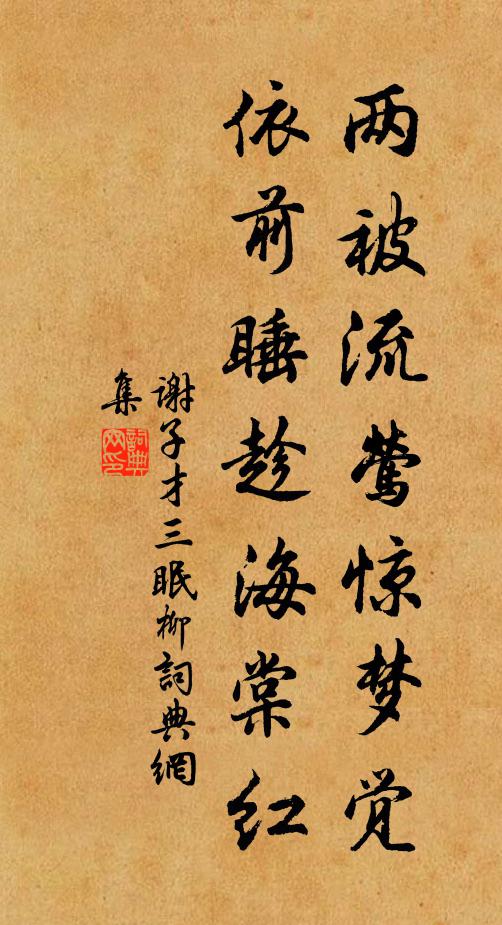 两被流莺惊梦觉
依前睡趁海棠红
谢子才三眠柳詞典網
集
詞典
网印